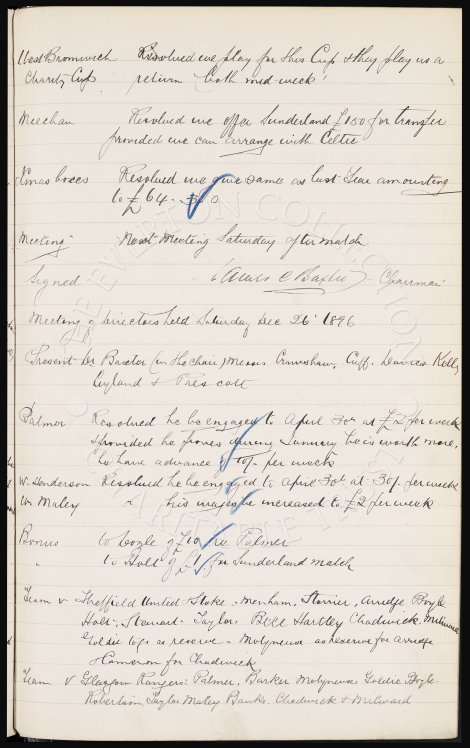 West Bromwich Resolved we play for this Cup & they play us a
Charity Cup return both mid-week.
Meechan Resolved we offer Sunderland £150 for transfer
provided we can arrange with Celtic
Xmas boxes Resolved we give same as last Year amounting
to £64.
Meeting Next Meeting Saturday after match
Signed James C Baxter Chairman
Meeting of Directors held Saturday Dec 26' 1896
Present Dr Baxter (in the chair) Messrs Crawshaw, Cuff. Davies Kelly
Leyland & Prescott
Palmer Resolved he be engaged to April 30th at £2 per week
& provided he proves during January he is worth more,
to have advance of 10/- per week
W. Henderson Resolved he be engaged to April 30th at 30/- per week
Wm Maley " his wages be increased to £2 per week
Bonus to Boyle of £10 re Palmer
" to Holt of £1 for Sunderland match
Team v Sheffield United Stoke - Menham, Storrier, Arridge Boyle
Holt, Stewart - Taylor. Bell Hartley Chadwick. Milward
Goldie to go as reserve - Molyneux as reserve for Arridge
& Cameron for Chadwick
Team v Glasgow Rangers: Palmer, Barker Molyneux Goldie Boyle.
Robertson Taylor Maley Banks Chadwick & Milward
THE EVERTON COLLECTION
CHARITABLE TRUST